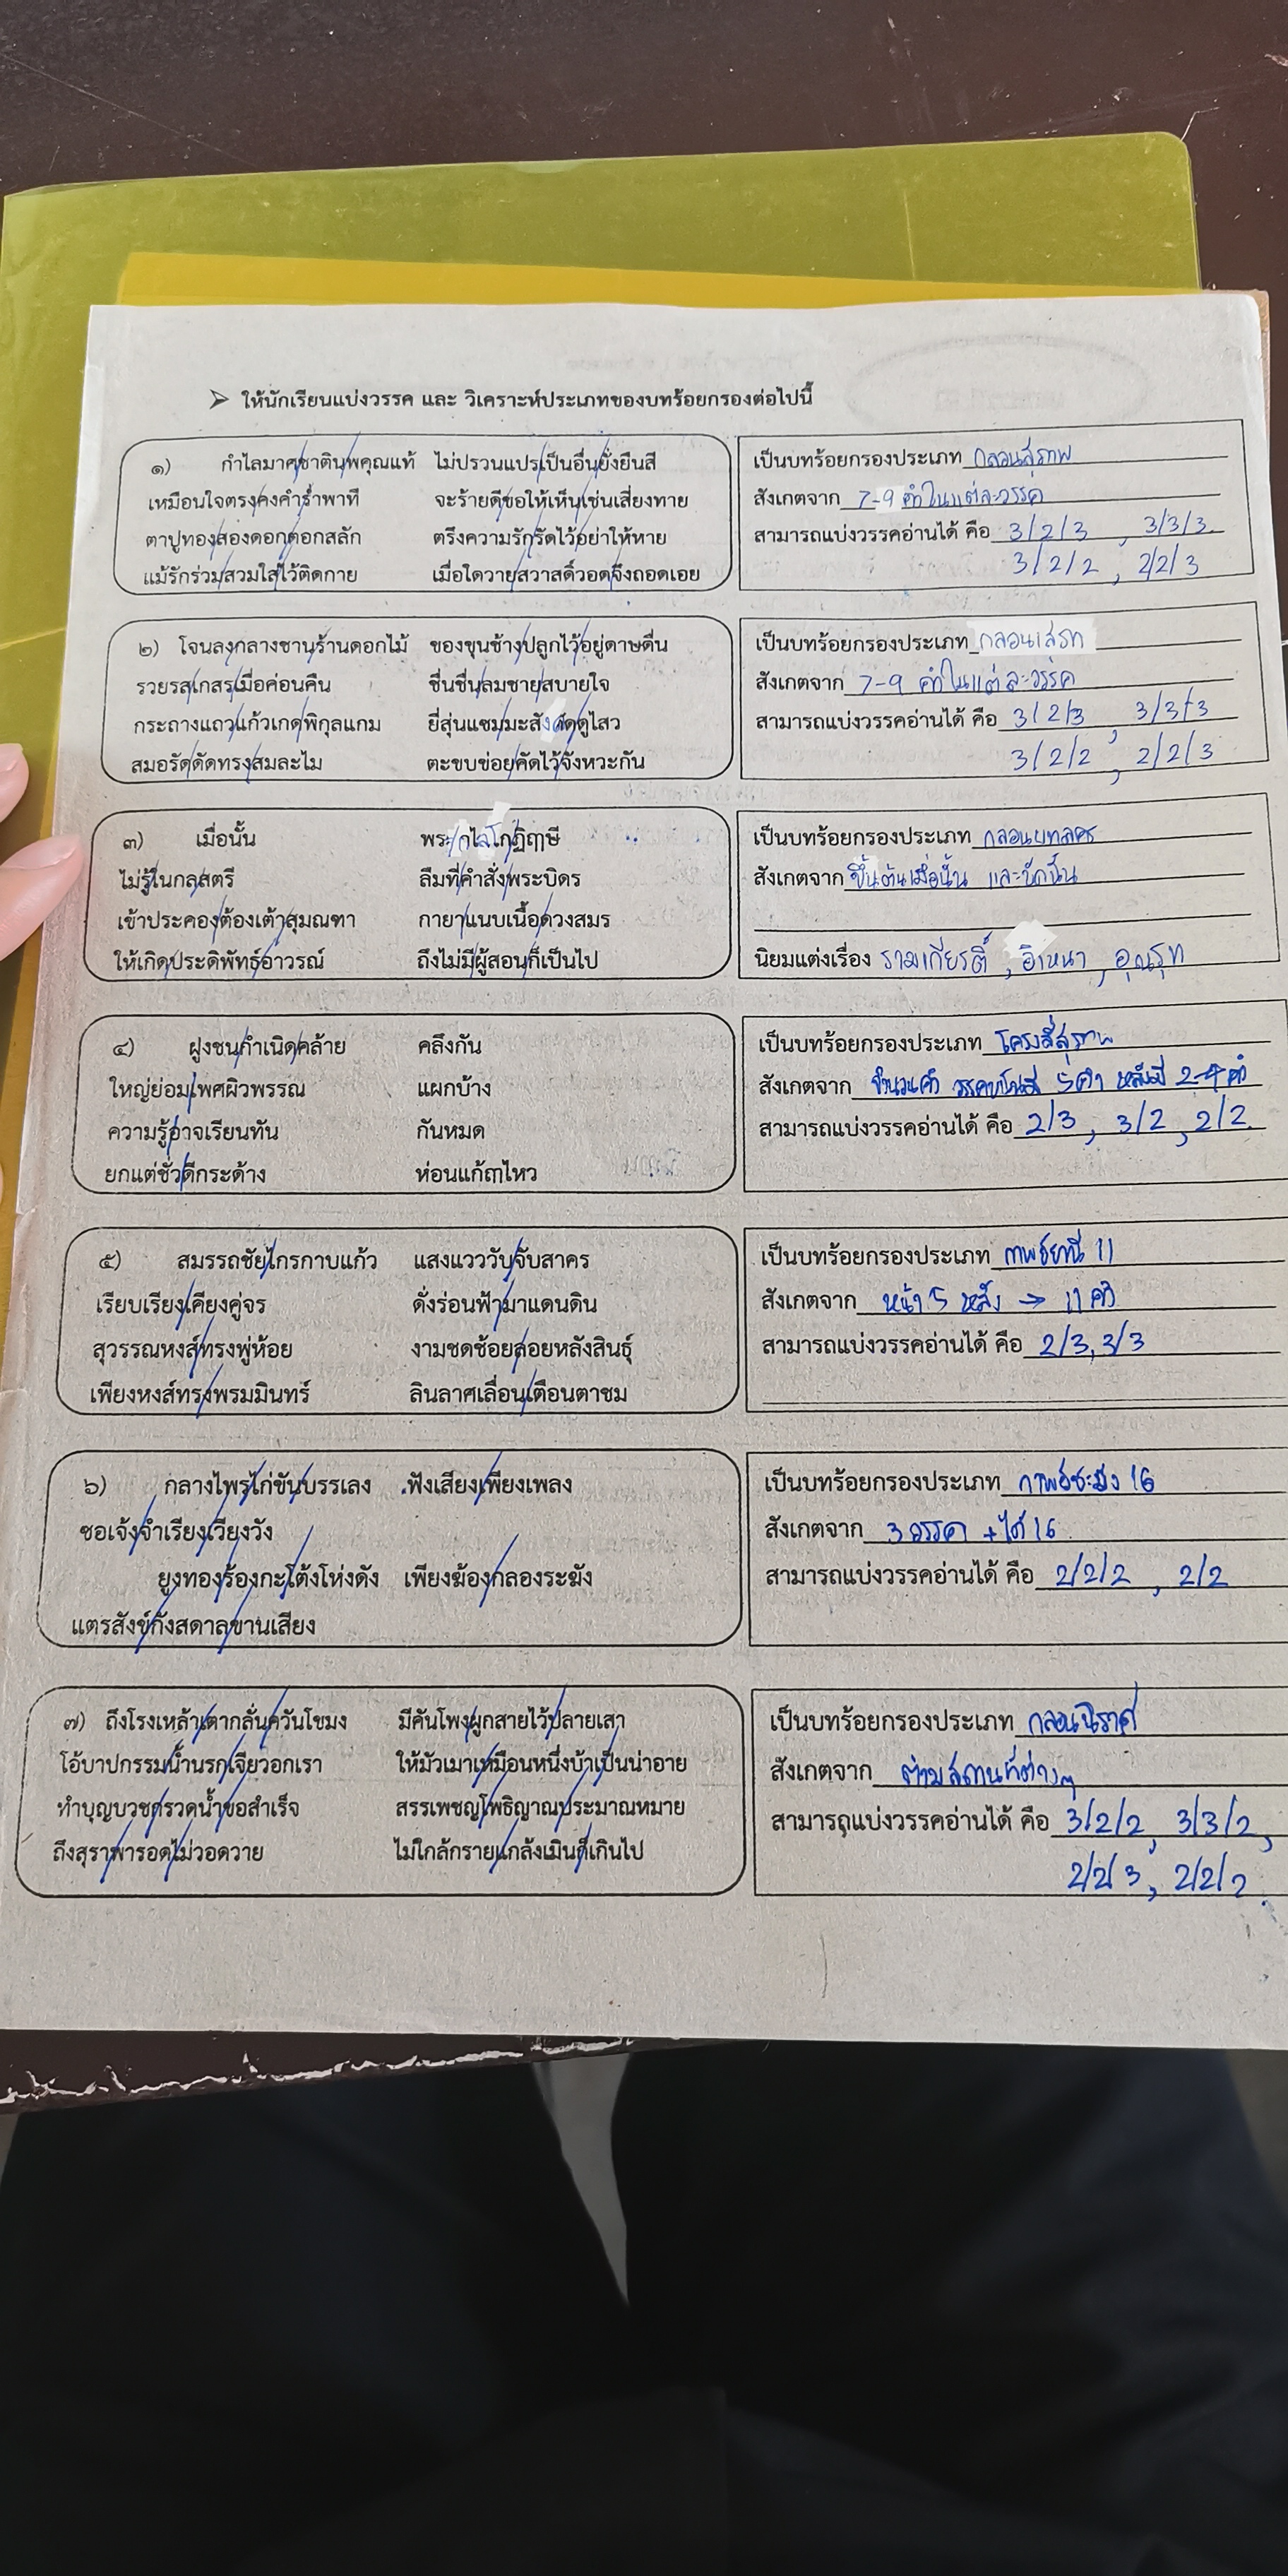 ➢ ให้นักเรียนแบ่งวรรค และ วิเคราะห์ประเภทของบทร้อยกรองต่อไปนี้
๑) กำไลมาศ/ชาตินพ/คุณแท้ ไม่ปรวนแปร/เป็นอื่น/ยั่งยืนสี
เหมือนใจตรง/คงคำ/ร่ำพาที จะร้ายดี/ขอให้เห็น/เช่นเสี่ยงทาย
ตาปูทอง/สองดอก/ตอกสลัก ตรึงความรัก/รัดไว้/อย่าให้หาย
แม้รักร่วม/สวมใส่/ไว้ติดกาย เมื่อใดวาย/สวาสดิ์วอด/จึงถอดเอย
เป็นบทร้อยกรองประเภท กลอนสุภาพ
สังเกตจาก 7-9 คำในแต่ละวรรค
สามารถแบ่งวรรคอ่านได้ คือ 3/2/3 , 3/3/3
3/2/2 , 2/2/3
๒) โจนลง/กลางชาน/ร้านดอกไม้ ของขุนช้าง/ปลูกไว้/อยู่ดาษดื่น
รวยรส/เกสร/เมื่อค่อนคืน ชื่นชื่น/ลมชาย/สบายใจ
กระถางแถว/แก้วเกด/พิกุลแกม ยี่สุ่นแซม/มะสังดัด/ดูไสว
สมอรัด/ดัดทรง/สมละไม ตะขบข่อย/คัดไว้/จังหวะกัน
เป็นบทร้อยกรองประเภท กลอนเสภา
สังเกตจาก 7-9 คำในแต่ละวรรค
สามารถแบ่งวรรคอ่านได้ คือ 3/2/3 , 3/3/3
3/2/2 , 2/2/3
๓) เมื่อนั้น พระ/กไลโกฏ/ฤๅษี
ไม่รู้/ในกล/สตรี ลืมที่/คำสั่ง/พระบิดร
เข้าประคอง/ต้องเต้า/สุมณฑา กายา/แนบเนื้อ/ดวงสมร
ให้เกิด/ประดิพัทธ์/อาวรณ์ ถึงไม่มี/ผู้สอน/ก็เป็นไป
เป็นบทร้อยกรองประเภท กลอนบทละคร
สังเกตจาก ขึ้นต้นเมื่อนั้น และบัดนั้น
นิยมแต่งเรื่อง รามเกียรติ์ , อิเหนา , อุณรุท
๔) ฝูงชน/กำเนิด/คล้าย คลึงกัน
ใหญ่ย่อม/เพศผิวพรรณ แผกบ้าง
ความรู้/อาจเรียนทัน กันหมด
ยกแต่ชั่ว/ดีกระด้าง ห่อนแก้ฤๅไหว
เป็นบทร้อยกรองประเภท โครงสี่สุภาพ
สังเกตจาก จำนวนคำ วรรคหน้ามี 5 คำ หลังมี 2-4 คำ
สามารถแบ่งวรรคอ่านได้ คือ 2/3 , 3/2 , 2/2
๕) สมรรถชัย/ไกรกาบแก้ว แสงแวววับ/จับสาคร
เรียบเรียง/เคียงคู่จร ดั่งร่อนฟ้า/มาแดนดิน
สุวรรณหงส์/ทรงพู่ห้อย งามชดช้อย/ลอยหลังสินธุ์
เพียงหงส์ทรง/พรมมินทร์ ลินลาศเลื่อน/เตือนตาชม
เป็นบทร้อยกรองประเภท กาพย์ยานี 11
สังเกตจาก หน้า 5 หลัง → 11 คำ
สามารถแบ่งวรรคอ่านได้ คือ 2/3, 3/3
๖) กลางไพร/ไก่ขัน/บรรเลง ฟังเสียง/เพียงเพลง
ซอเจ้ง/จำเรียง/เวียงวัง
ยูงทอง/ร้องกะ/โต้งโห่งดัง เพียงฆ้อง/กลองระฆัง
แตรสังข์/กังสดาล/ขานเสียง
เป็นบทร้อยกรองประเภท กาพย์ฉบัง 16
สังเกตจาก 3 วรรค +ได้ 16
สามารถแบ่งวรรคอ่านได้ คือ 2/2/2 , 2/2
๗) ถึงโรงเหล้า/เตากลั่น/ควันโขมง มีคันโพง/ผูกสายไว้/ปลายเสา
โอ้บาปกรรม/น้ำนรก/เจียวอกเรา ให้มัวเมา/เหมือนหนึ่งบ้า/เป็นน่าอาย
ทำบุญบวช/กรวดน้ำ/ขอสำเร็จ สรรเพชญ/โพธิญาณ/ประมาณหมาย
ถึงสุรา/พารอด/ไม่วอดวาย ไม่ใกล้กราย/แกล้งเมิน/ก็เกินไป
เป็นบทร้อยกรองประเภท กลอนนิราศ
สังเกตจาก ตามสถานที่ต่างๆ
สามารถแบ่งวรรคอ่านได้ คือ 3/2/2 , 3/3/2 ,
2/2/3 , 2/2/2